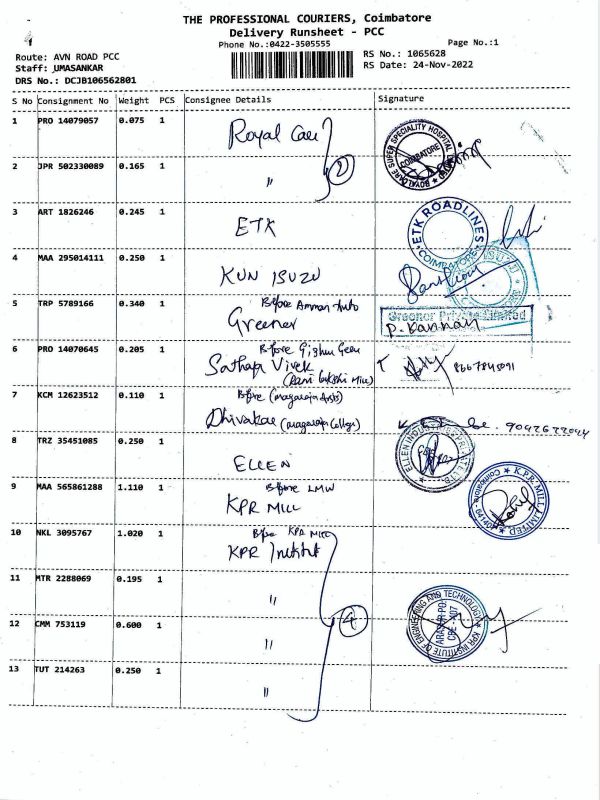 THE PROFESSIONAL COURIERS, Coimbatore
Delivery Runsheet - PCC
Phone No.:0422-3505555
Page No.:1
Route: AVN ROAD PCC
RS No.: 1065628
Staff: UMASANKAR
RS Date: 24-Nov-2022
DRS No.: DCJB106562801
S No Consignment No Weight PCS Consignee Details Signature
1 PRO 14079057 0.075 1 Royal Care
ROYALCARE SUPER SPECIALITY HOSPITAL
COIMBATORE
2 JPR 502330089 0.165 1 〃 2
3 ART 1826246 0.245 1 ETK
ETK ROADLINES
COIMBATORE
4 MAA 295014111 0.250 1 KUN ISUZU
ISUZU
Before Amman Auto
5 TRP 5789166 0.340 1 Greener
Greenor Private Limited
P. Kannan
6 PRO 14070645 0.205 1 Before
Sathap Vivek
(Rani Lakshmi Mill)
7 KCM 12623512 0.110 1 Before
Dhivakar
9042622044
8 TRZ 35451085 0.250 1 ELLEN
ELLEN INDUSTRIES
9 MAA 565861288 1.110 1 Before LMW
KPR MILL
K.P.R. MILL LIMITED
COIMBATORE
641407
10 NKL 3095767 1.020 1 Before KPR MILL
KPR Institute
11 MTR 2288069 0.195 1 〃
12 CMM 753119 0.600 1 〃 4
KPR INSTITUTE OF ENGINEERING AND TECHNOLOGY
ARASUR PO.
CBE - 407
13 TUT 214263 0.250 1 〃